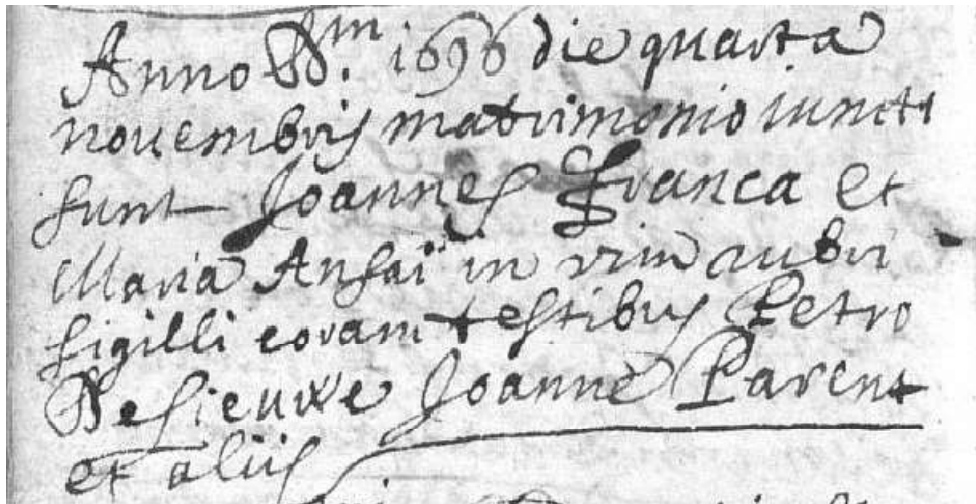 Anno Dm. 1696 die quarta
novembris matrimonio iuncti
sunt Joannes Franca et
Maria Ansaï in vim rubri
sigilli coram testibus Petro
Desieuwe Joanne Parent
et aliis